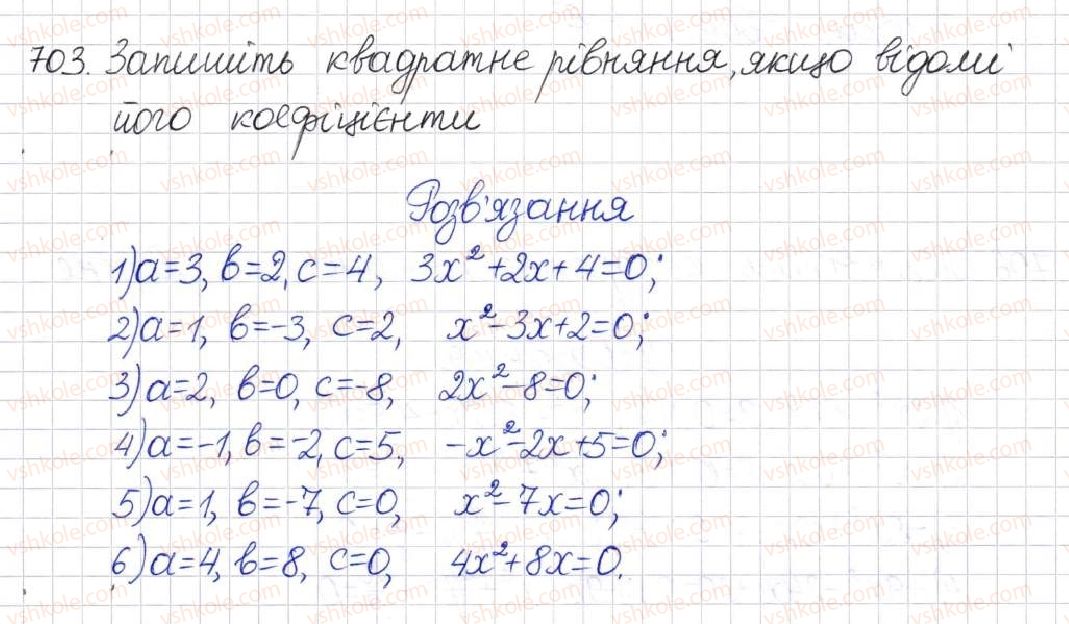 703. Запишіть квадратне рівняння, якщо відомі
його коефіцієнти
Розв'язання
1) a=3, b=2, c=4, 3x²+2x+4=0;
2) a=1, b=-3, c=2, x²-3x+2=0;
3) a=2, b=0, c=-8, 2x²-8=0;
4) a=-1, b=-2, c=5, -x²-2x+5=0;
5) a=1, b=-7, c=0, x²-7x=0;
6) a=4, b=8, c=0, 4x²+8x=0.
vshkole.com